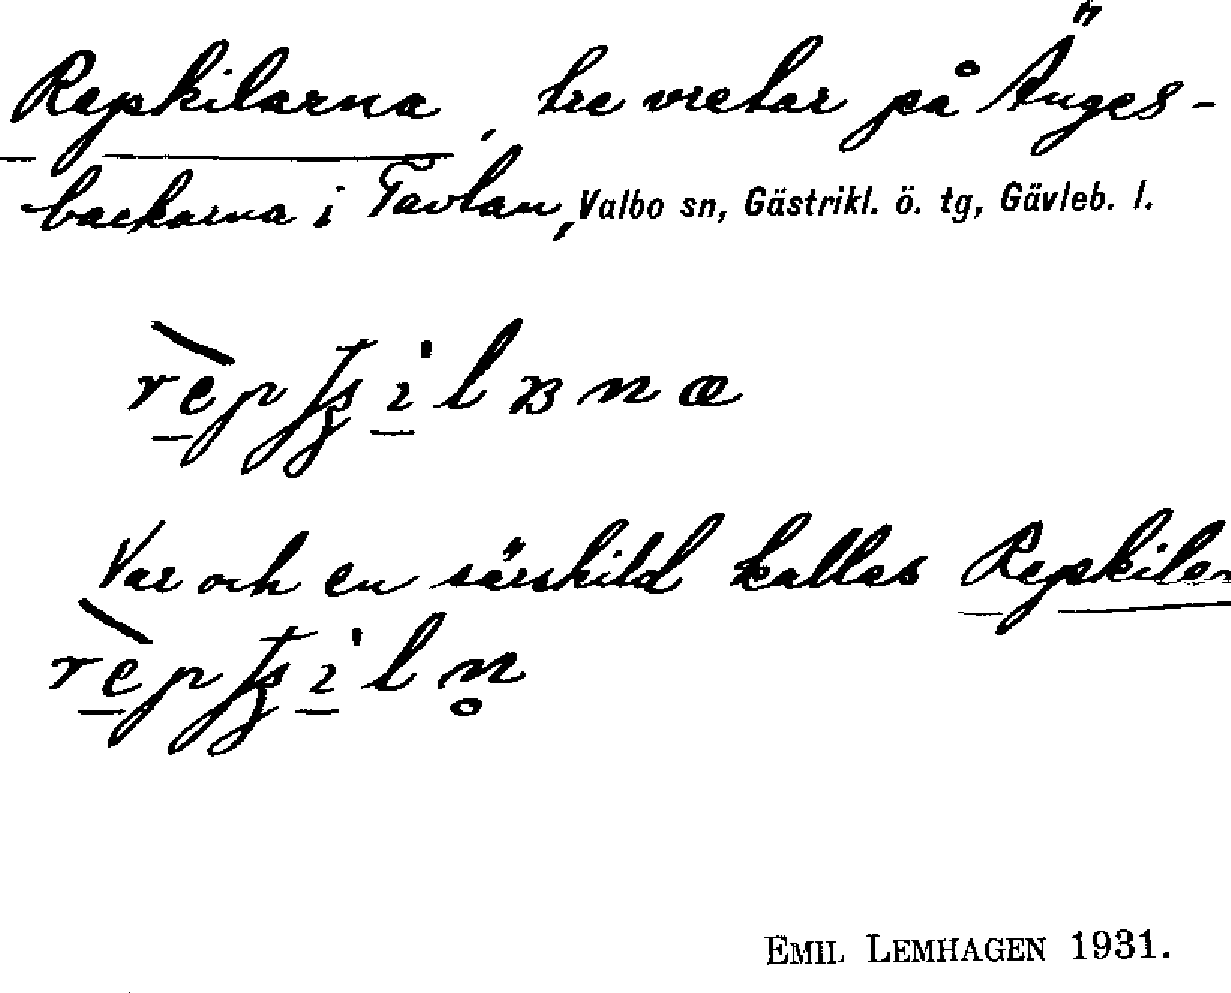 Repkilarna, tre vretar på Änges-
backarna i Tavlan, Valbo sn, Gästrikl. ö. tg, Gävleb. l.
Var och en särskild kallas Repkilen
EMIL LEMHAGEN 1931.